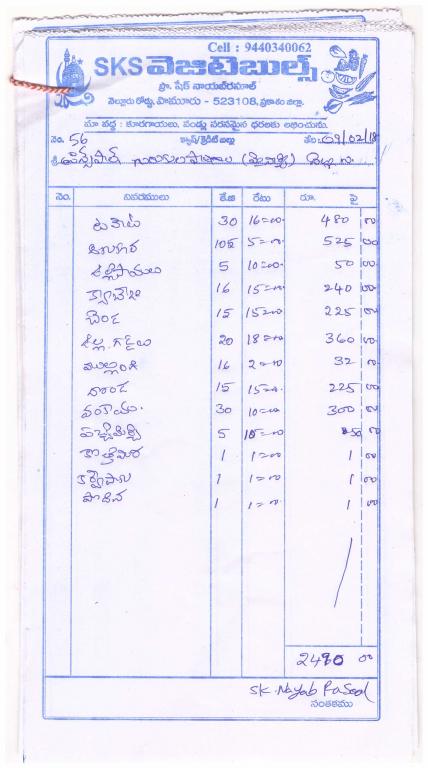 Cell : 9440340062
SKS వెజిటెబుల్స్
ప్రొ. షేక్ నాయబ్‌రసూల్
వెల్లూరు రోడ్డు, పామూరు - 523108, ప్రకాశం జిల్లా.
మా వద్ద : కూరగాయలు, పండ్లు సరసమైన ధరలకు లభించును.
నెం. 56 క్యాష్/క్రెడిట్ బిల్లు తేది: 09/02/18
శ్రీ
నెం. వివరములు కేజి రేటు రూ. పై
టమోటా 30 16=00 480 00
105 5=00 525 00
5 10=00 50 00
క్యాబేజి 16 15=00 240 00
బెండ 15 15=00 225 00
ఉల్లి గడ్డలు 20 18=00 360 00
ముల్లంగి 16 2=00 32 00
దొండ 15 15=00 225 00
వంకాయ 30 10=00 300 00
పచ్చిమిర్చి 5 10=00 50 00
కొత్తిమీర 1 1=00 1 00
కరివేపాకు 1 1=00 1 00
పొదిన 1 1=00 1 00
2490 00
SK. Nayab Rasool
సంతకము